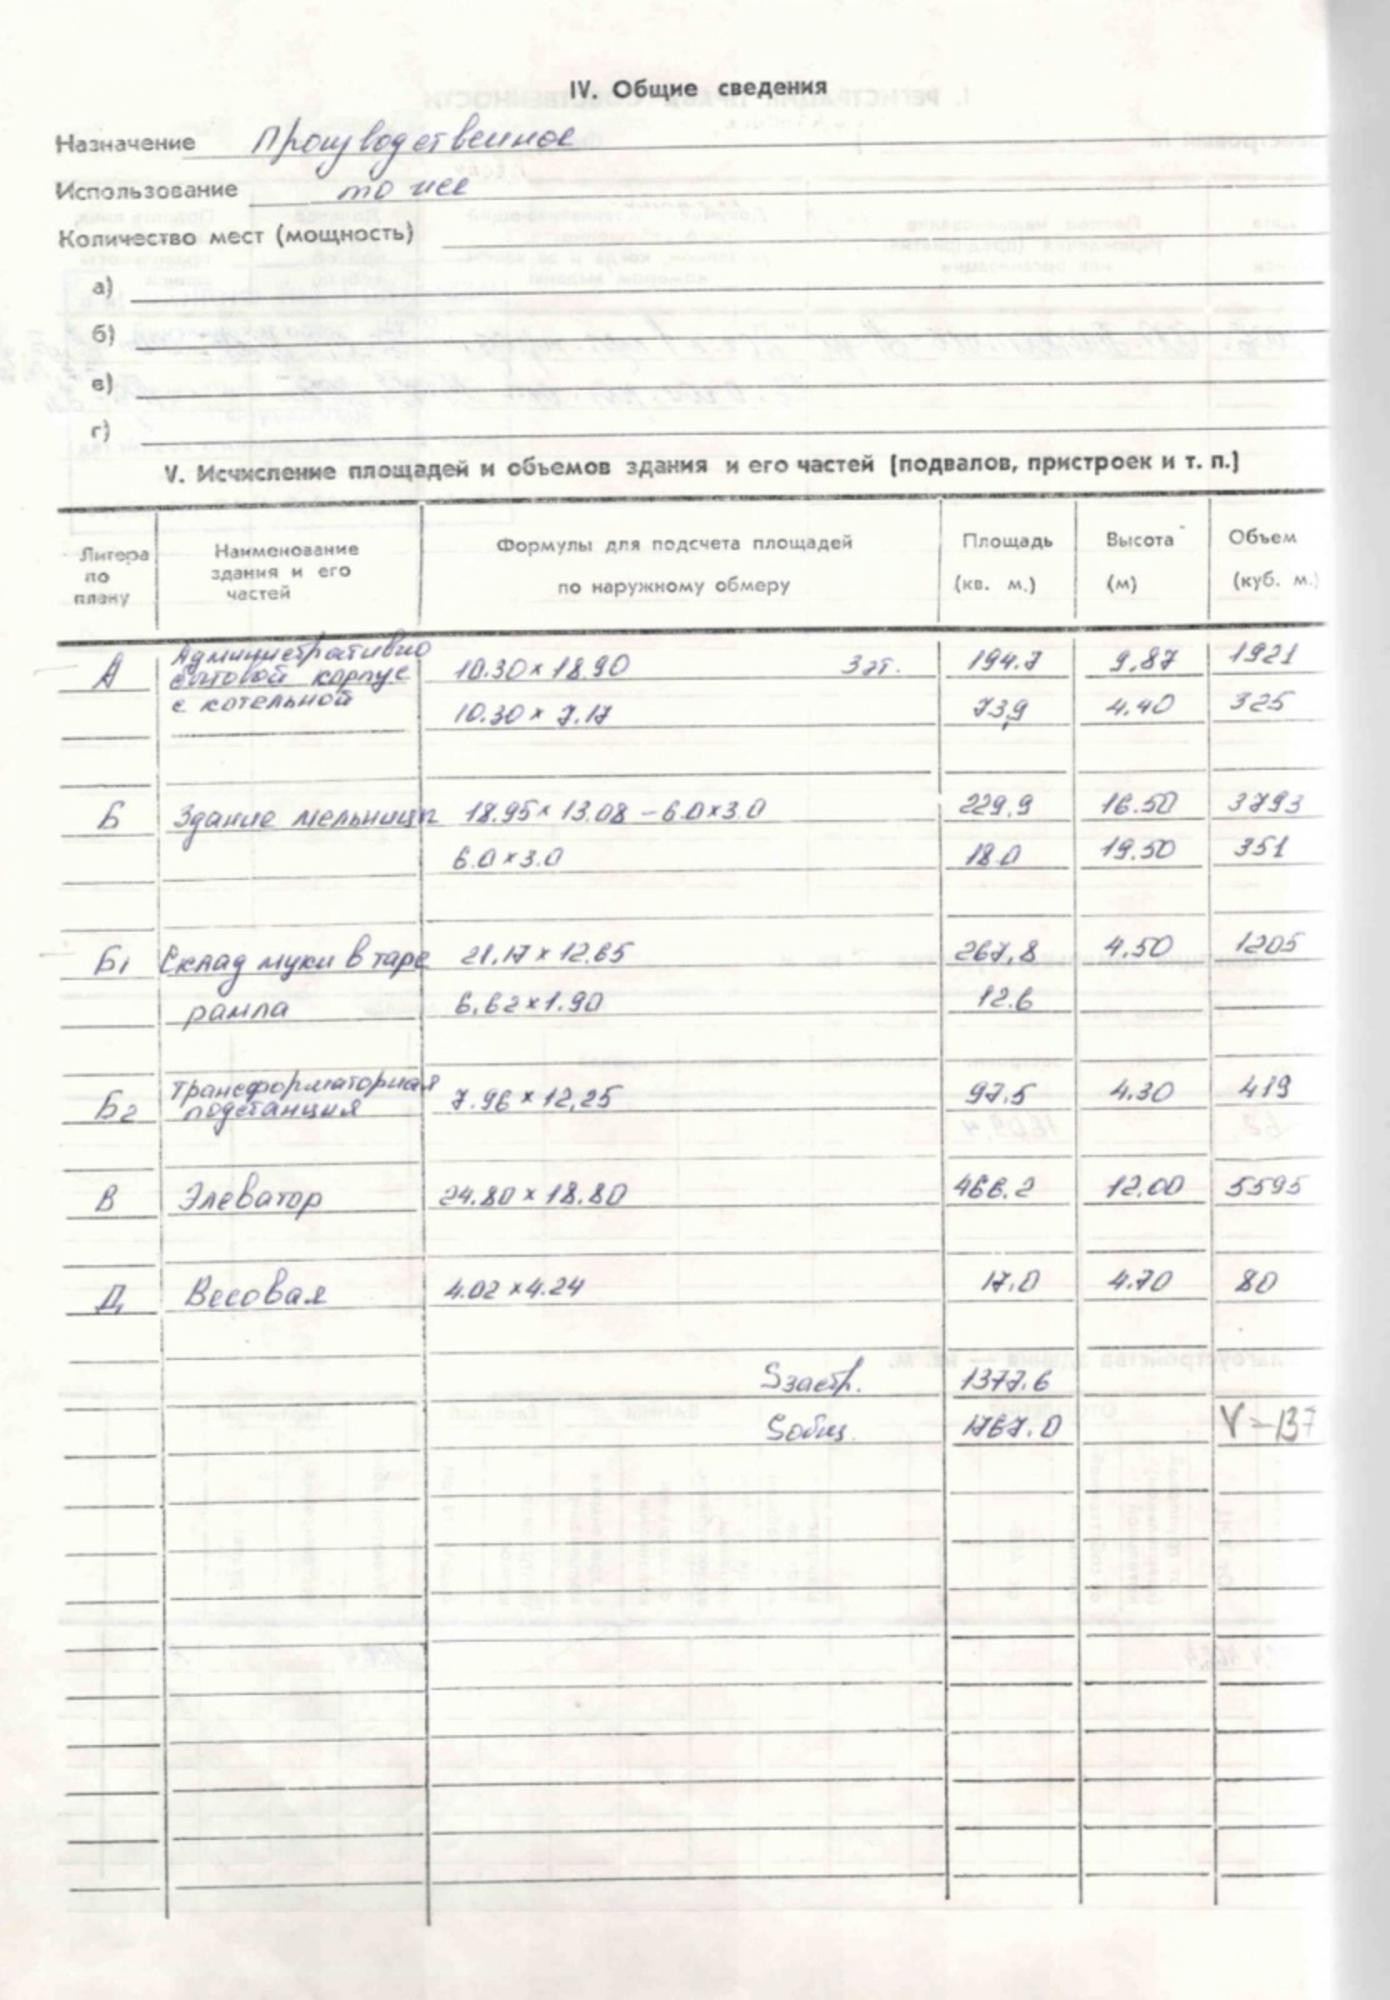 IV. Общие сведения
Назначение Производственное
Использование то же
Количество мест (мощность)
а)
б)
в)
г)
V. Исчисление площадей и объемов здания и его частей (подвалов, пристроек и т. п.)
Литера по плану Наименование здания и его частей Формулы для подсчета площадей по наружному обмеру Площадь (кв. м.) Высота (м) Объем (куб. м.)
А Административно бытовой корпус с котельной 10.30 × 18.90 3 эт. 194.7 9,87 1921
10.30 × 7.17 73,9 4.40 325
Б Здание мельницы 18.95 × 13.08 – 6.0 × 3.0 229,9 16.50 3793
6.0 × 3.0 18.0 19.50 351
Б1 Склад муки в таре 21,17 × 12.65 267,8 4.50 1205
рампа 6,62 × 1.90 12.6
Б2 Трансформаторная подстанция 7.96 × 12,25 97.5 4.30 419
В Элеватор 24.80 × 18.80 466.2 12.00 5595
Д Весовая 4.02 × 4.24 17.0 4.70 80
Sзастр. 1377.6
Sобщ. 1767.0 V = 137